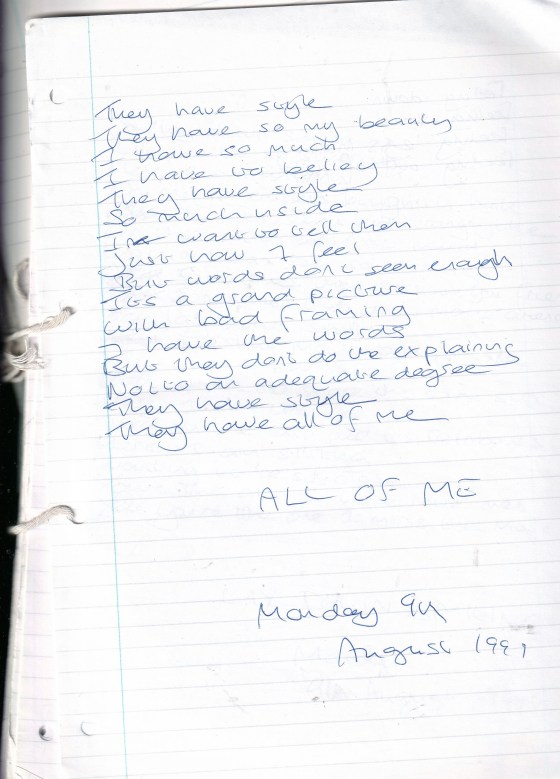 They have style
They have so my beauty
I have so much
I have to believ
They have style
So much inside
I want to tell them
Just how I feel
But words don't seem enough
It's a grand picture
with bad framing
I have the words
But they don't do the explaining
Not to an adequate degree
They have style
They have all of me
ALL OF ME
Monday 9th
August 1991